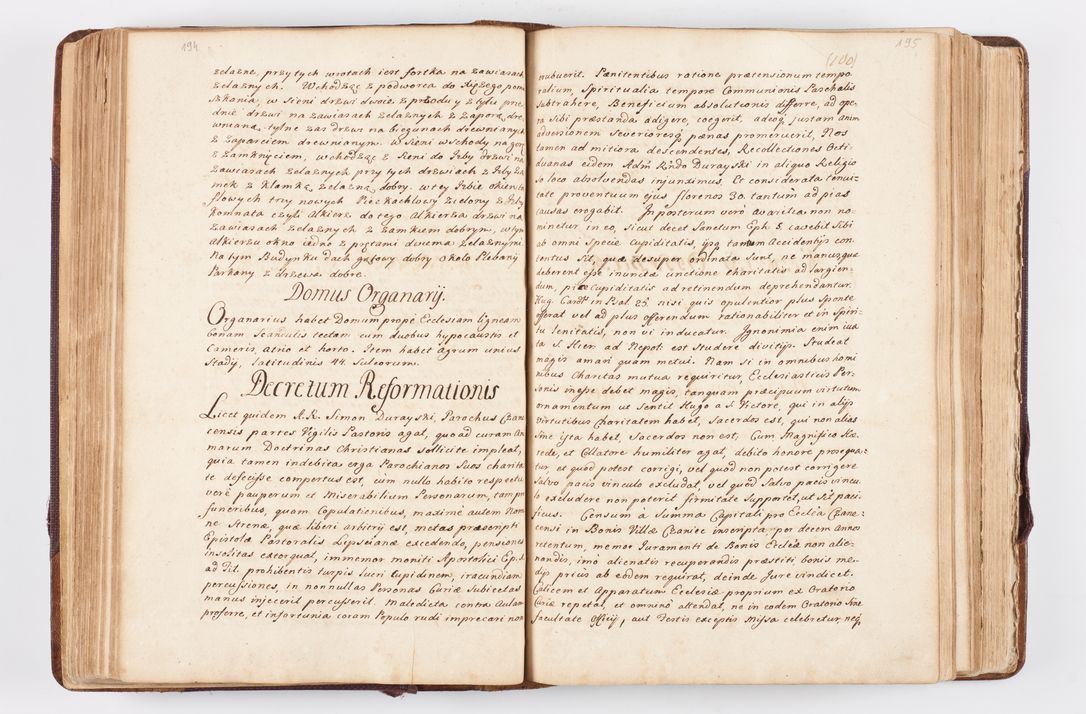 194
zelazne, przy tych wrotach iest fortka na zawiasach
zelaznych. Wchodząc z podworca do Xięzego pom
szkania, w sieni drzwi dwoie z przodu y z tylu prze
dnie drzwi na zawiasach zelaznych z zaporą dre
wnianą, tylne zas drzwi na biegunach drewnianych
z zaparciem drewnianym. w sieni wschody na gorę
z zamknięciem, wchodząc z sieni do Izby drzwi na
zawiasach zelaznych przy tych drzwiach z Izby za
mek z klamką zelazną dobry. w tey Izbie okien ta
flowych trzy nowych Piec kachlowy zielony z Izby
komnata czyli Alkierz do tego Alkierza drzwi na
zawiasach zelaznych z zamkiem dobrym, w tym
alkierzu okno iedno z prętami dwiema zelaznymi
Na tym Budynku dach gątowy dobry około Plebanij
Parkany z drzewa dobre.
Domus Organarij.
Organarius habet Domum propè Ecclesiam ligneam
bonam Scandulis tectam cum duobus hypocaustis et
Cameris, atrio et horto. Item habet agrum unius
Stady, latitudinis 44 Sulcorum.
Decretum Reformationis
Licet quidem A. R. Simon Durayski, Parochus Czan
censis partes Vigilis Pastoris agat, quo ad curam An
marum Doctrinas Christianas sollicite impleat,
quia tamen indebita erga Parochianos Suos charita
te defecisse compertus est, cum nullo habito respectu
verè pauperum et Miserabilium Personarum, tam pro
funeribus, quam Copulationibus, maximè autem Nom
ne Strenæ, quæ liberi arbitrij est, metas præscripti
Epistolæ Pastoralis Lipscianæ excedendo, pensiones
insolitas extorqual, immemor moniti Apostolici Ep.
ad Tit. prohibentis turpis lucri Cupidinem, iracundiam
percussiones, in nonnullas Personas Curiæ Subiectas
manus injecerit percusserit. Maledicta contra Aulam
proferre, et infortunia coram Populo rudi imprecari non
195
(100)
nubuerit. Pænitentibus ratione prætensionum tempo
ralium, Spiritualia tempore Communionis Paschalis
subtrahere, Beneficium absolutionis differre, ad ope
ra sibi præstanda adigere, coegerit, adeoq justam anim
adversionem Severioresq pænas promeruerit, Nos
tamen ad mitiora descendentes, Recollectiones Octi
duanas eidem Adm Rndo Durayski in aliquo Religio
so loco absolvendas injunximus. Et considerata tenui
tate proventuum ejus florenos 30. tantum ad pias
causas erogabit. In posterum verò avaritia non no
minetur in eo, sicut decet Sanctum Eph. 5. cavebit sibi
ab omni Specie Cupiditatis, ijsq tamen Accidentijs con
tentus sit, quæ desuper ordinata sunt, ne manus quæ
deberent esse inunctæ unctione charitatis ad largien
dum, pice cupiditatis ad retinendum deprehendantur.
Hug. Card in Psal 25 nisi quis opulentior plus sponte
offerat vel ad plus offerendum rationabiliter et in Spiri
tu lenitatis, non vi inducatur. Ignonimia enim iux
ta S. Hier. ad Nepot: est studere divitijs. Studeat
magis amari quam metui. Nam si in omnibus homi
nibus Charitas mutua requiritur, Ecclesiasticis Per
sonis inesse debet magis, tanquam præcipuum virtutum
ornamentum ut Sentit Hugo a S. Victore, qui in alijs
virtutibus charitatem habet, Sacerdos est, qui non alias
sine ista habet, Sacerdos non est, Cum Magnifico Hæ
rede, et Collatore humiliter agat, debito honore prosequa
tur, et quod potest corrigi, vel quod non potest corrigere
Salvo pacis vinculo excludat, vel quod Salvo pacis vincu
lo excludere non poterit firmitate Supportet, ut sit paci
ficus. Censum à Summa Capitali pro Ecclia Czane
censi in Bonis Villæ Czaniec inscripta per decem annos
retentum, memor Juramenti de Bonis Ecclia non alie
nandis, imò alienatis recuperandis præstiti, bonis me
dijs priùs ab eodem requirat, deinde Jure vindicet.
Calicem et Apparatum Ecclesiæ proprium ex Oratorio
Curiæ repetat, et omninò attendat, ne in eodem Oratorio sine
facultate Officij, aut Festis exceptis Missa celebretur, neq